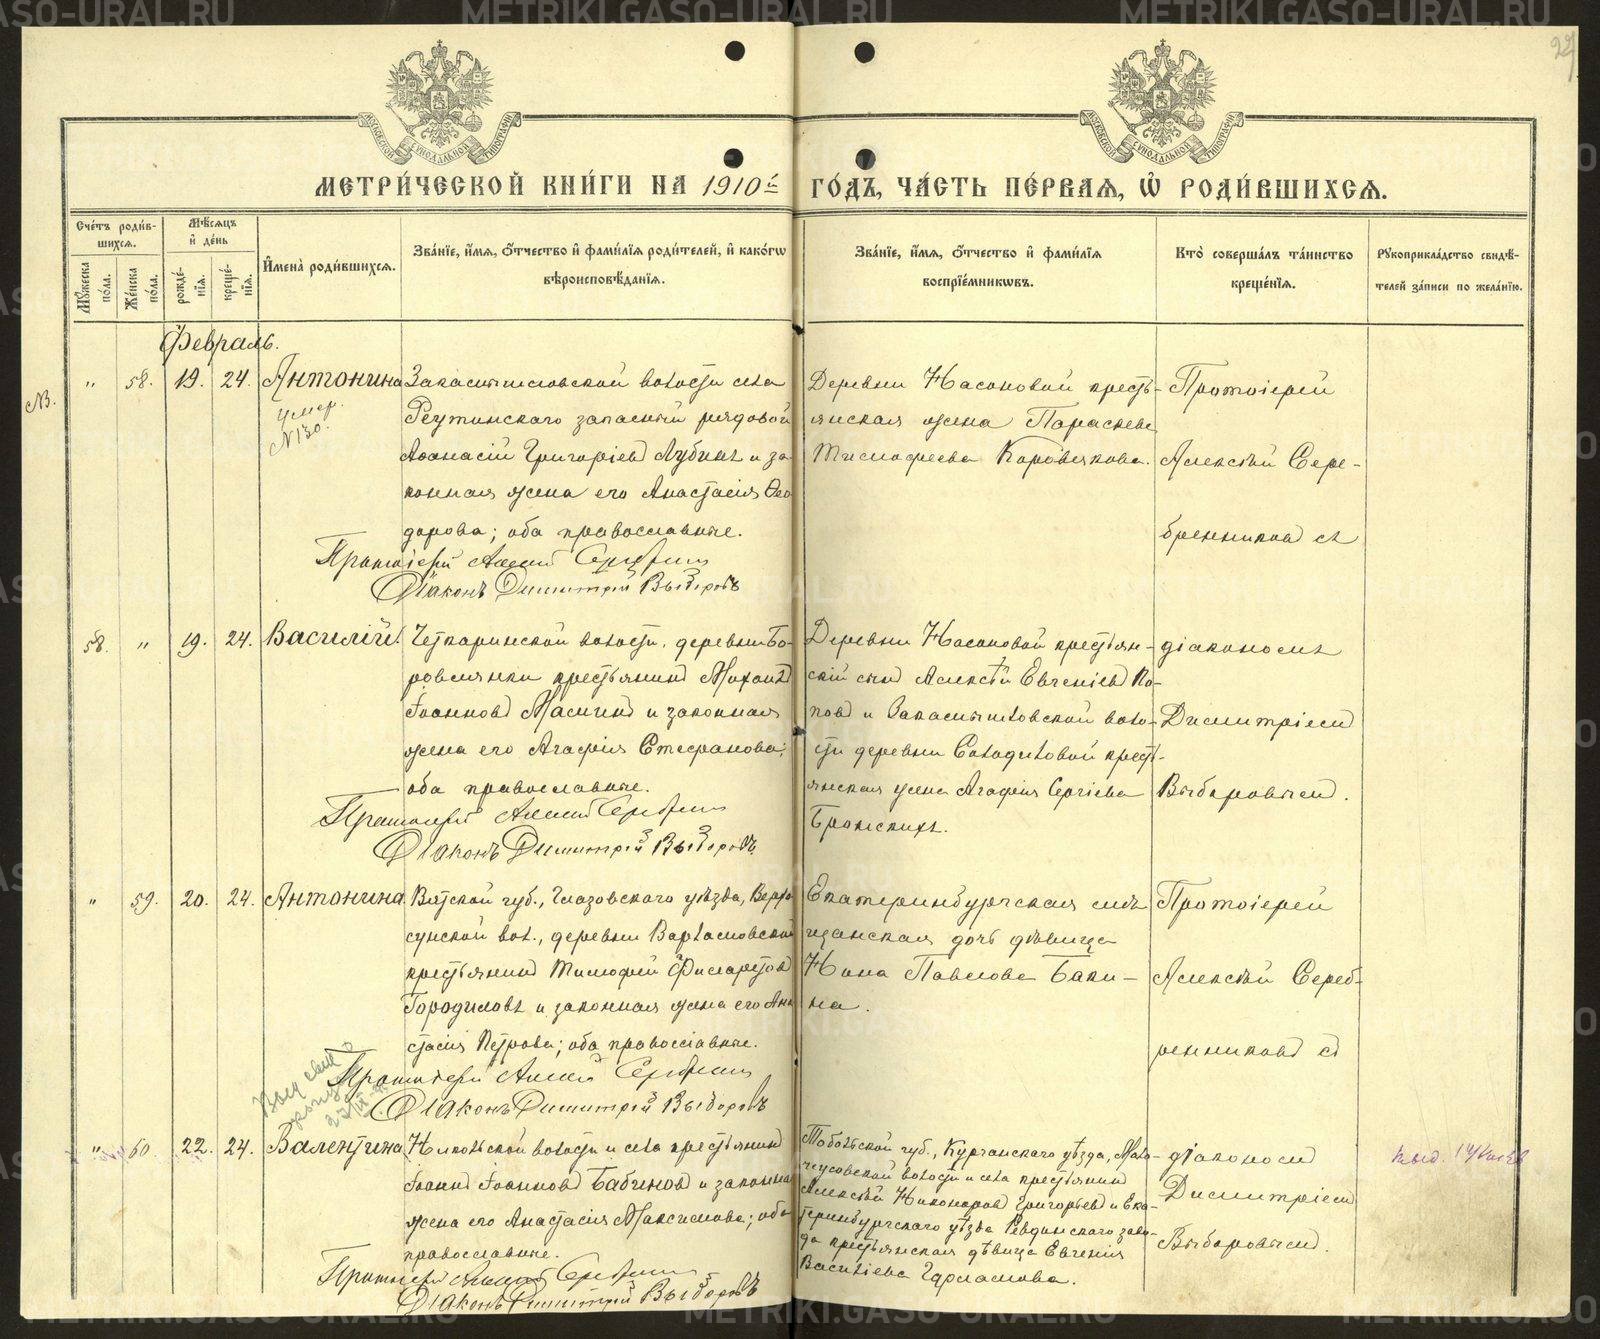 METRIKI.GASO-URAL.RU
27
МОСКОВСКОЙ СѴНОДАЛЬНОЙ ТИПОГРАФІИ
МЕТРИ́ЧЕСКОЙ КНИ́ГИ НА 1910й ГО́ДЪ, ЧА́СТЬ ПЕ́РВАЯ, Ѿ РОДИ́ВШИХСЯ.
Сче́тъ роди́в-
шихся.
Му́жеска по́ла.
Же́нска по́ла.
Мѣ́сяцъ
и҆ де́нь
рожде́-
нїя.
креще́-
нїя.
И҆мена̀ роди́вшихся.
Зва́нїе, и҆́мя, ѻ҆́тчество и҆ фами́лїя роди́телей, и҆ како́гѡ
вѣроисповѣ́данїя.
Зва́нїе, и҆́мя, ѻ҆́тчество и҆ фами́лїя
воспрїе́мникѡвъ.
Кто̀ соверша́лъ та́инство
креще́нїя.
Рукоприкла́дство свидѣ́-
телей за́писи по жела́нїю.
Февраль.
№.
" 58. 19. 24. Антонина
умер.
№130.
волости села
запасный рядовой
Аѳанасій Григоріевъ и за-
конная жена его Анастасія Ѳео-
дорова; оба православные.
Протоіерей
Діаконъ Димитрій Выборовъ
Деревни Насоновой кресть-
янская жена Параскева
Тимофеева Коровякова.
Протоіерей
Алексѣй Сере-
бренниковъ съ
58. " 19. 24. Василій
волости, деревни Бо-
ровлянки крестьянинъ Михаилъ
Іоанновъ и законная
жена его Агафія Стефанова;
оба православные.
Протоіерей
Діаконъ Димитрій Выборовъ
Деревни Насоновой крестьян-
скій сынъ Алексѣй Евгеніевъ По-
повъ и воло-
сти деревни кресть-
янская жена Агафія Сергіева
діакономъ
Димитріемъ
Выборовымъ.
" 59. 20. 24. Антонина
Вятской губ., Глазовскаго уѣзда, Верхо-
сунской вол., деревни
крестьянинъ Тимофей Филаретовъ
Городиловъ и законная жена его Ана-
стасія Петрова; оба православные.
Протоіерей
Діаконъ Димитрій Выборовъ
Екатеринбургская мѣ-
щанская дочь дѣвица
Нина Павлова Баки-
на.
Протоіерей
Алексѣй Сереб-
ренниковъ съ
" 60. 22. 24. Валентина
волости и села крестьянинъ
Іоаннъ Іоанновъ Бабиновъ и законная
жена его Анастасія Максимова; оба
православные.
Протоіерей
Діаконъ Димитрій Выборовъ
Тобольской губ., Курганскаго уѣзда,
волости и села крестьянинъ
Алексѣй Никаноровъ Григорьевъ и Ека-
теринбургскаго уѣзда Ревдинскаго заво-
да крестьянская дѣвица Евгенія
Василіева
діакономъ
Димитріемъ
Выборовымъ.